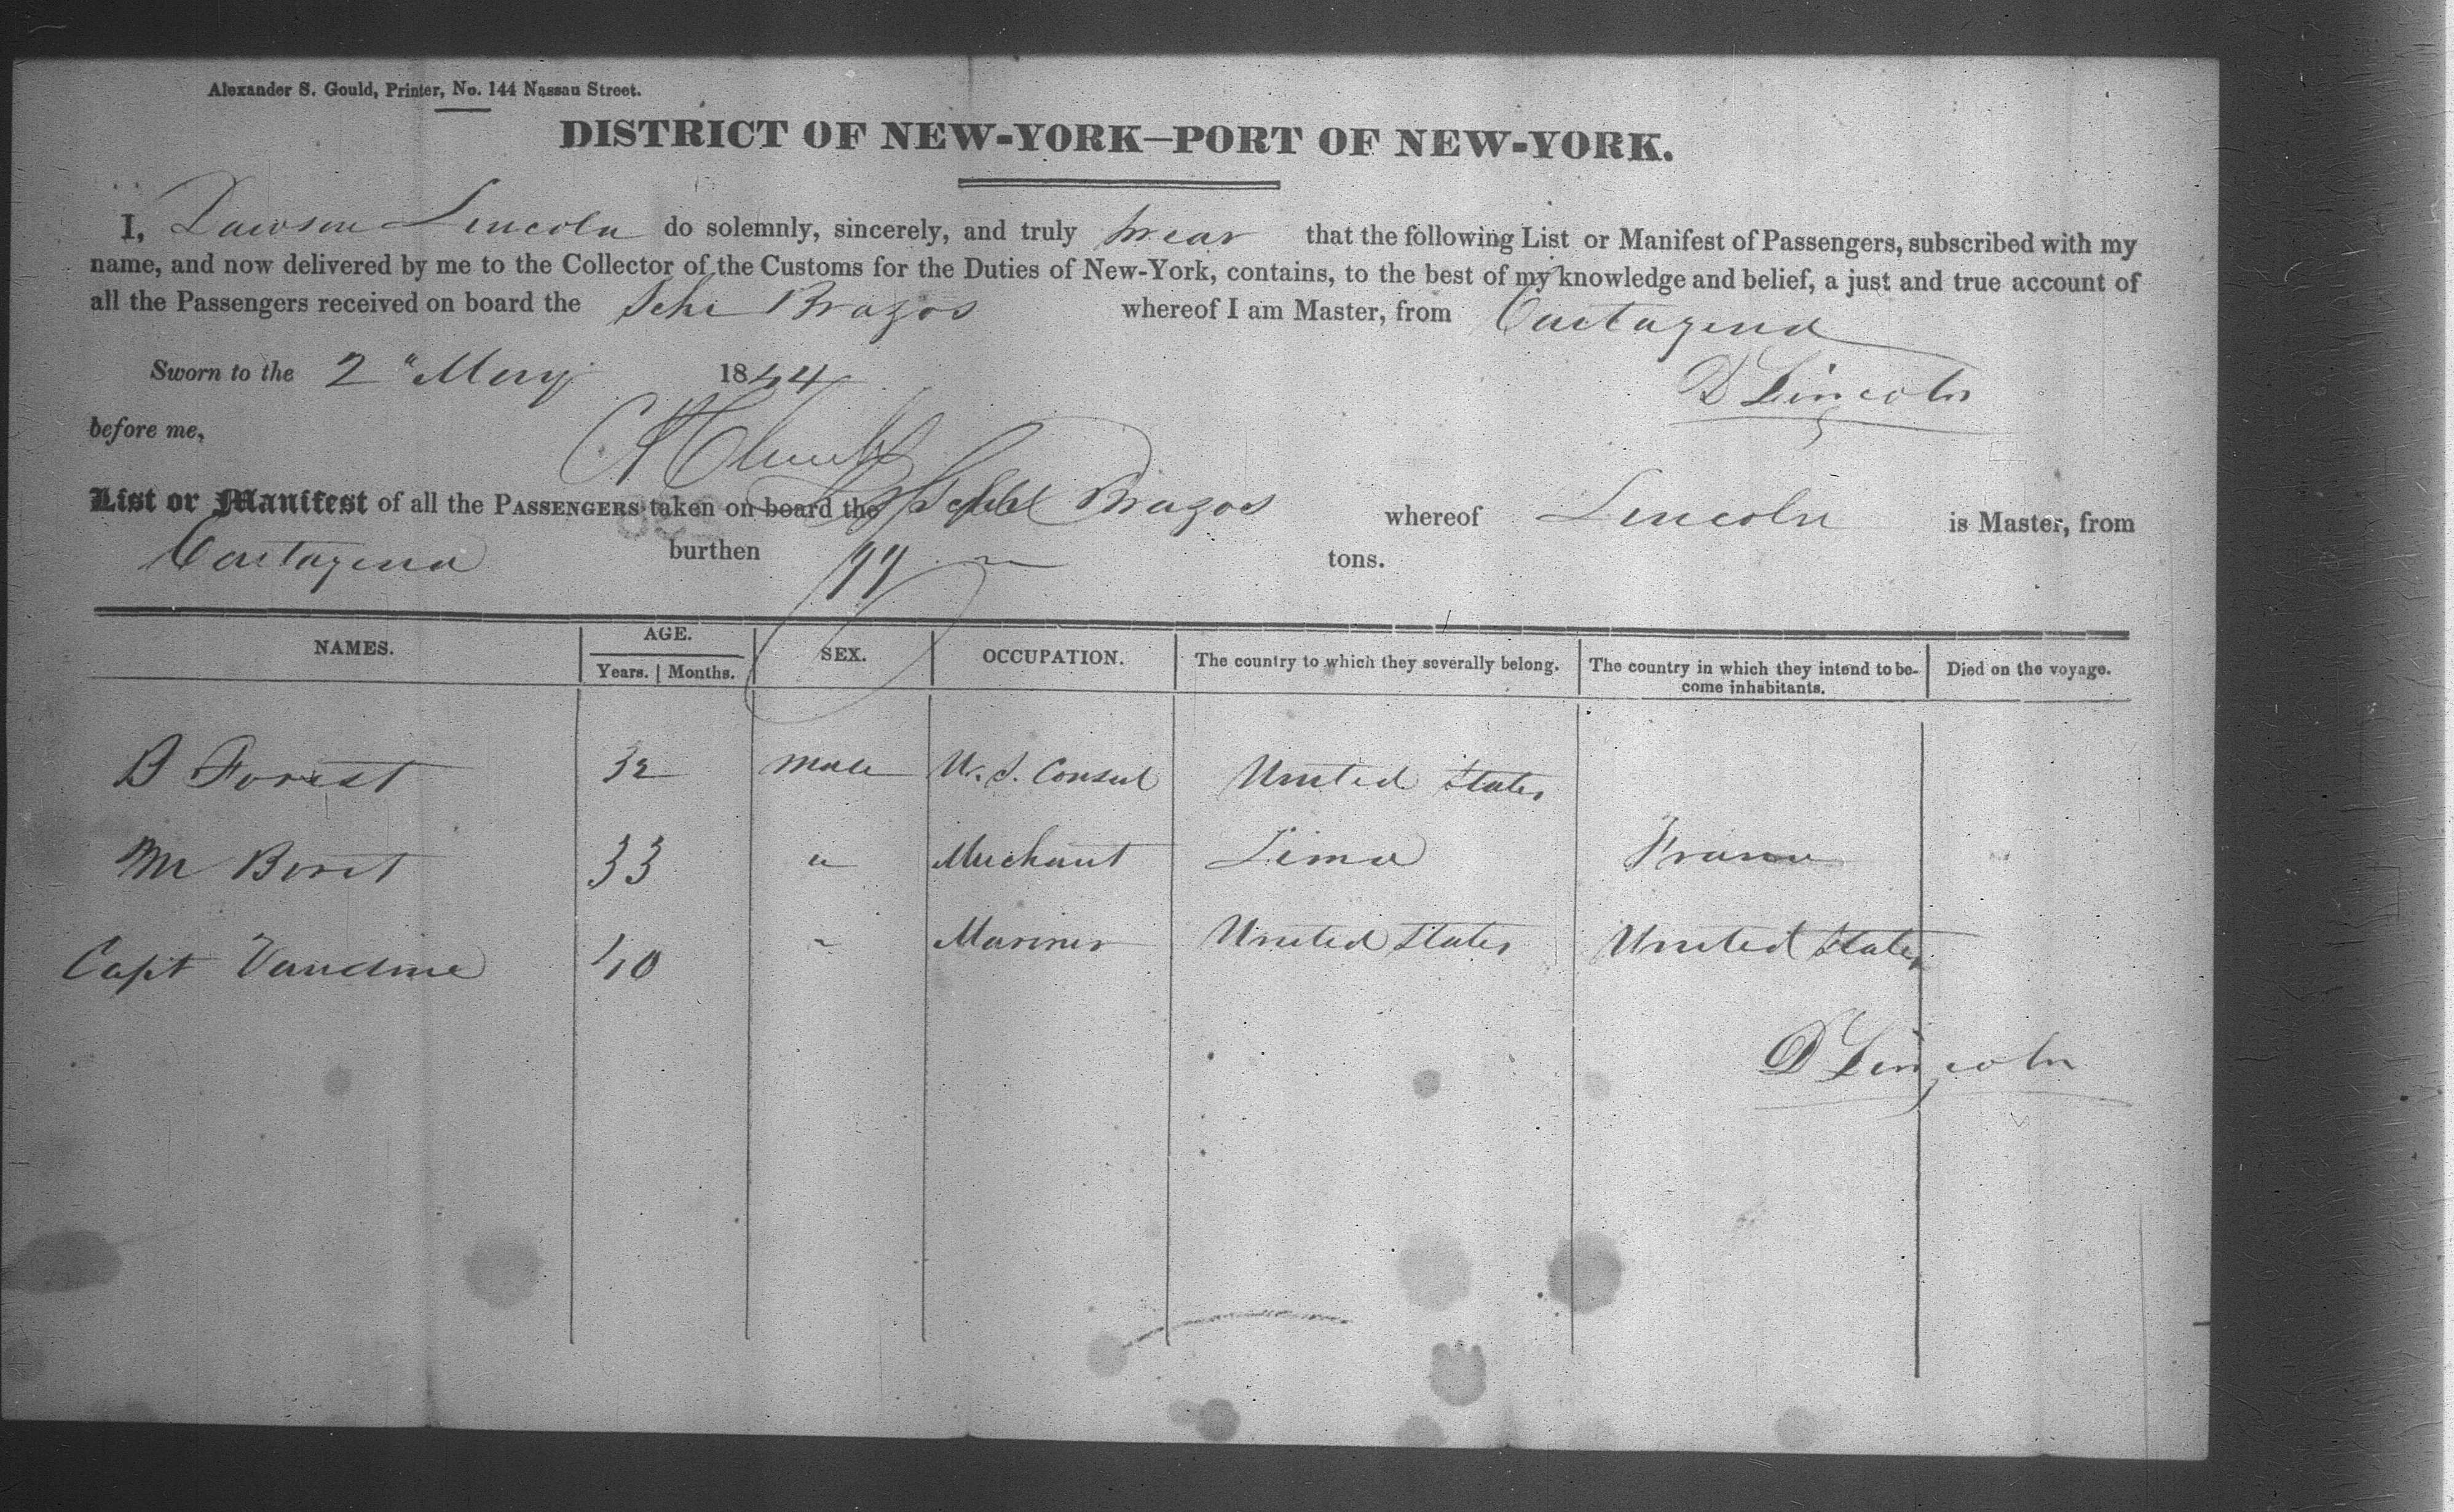 Alexander S. Gould, Printer, No. 144 Nassau Street.
DISTRICT OF NEW-YORK—PORT OF NEW-YORK.
I, Dawson Lincoln do solemnly, sincerely, and truly swear that the following List or Manifest of Passengers, subscribed with my
name, and now delivered by me to the Collector of the Customs for the Duties of New-York, contains, to the best of my knowledge and belief, a just and true account of
all the Passengers received on board the Schr Brazos whereof I am Master, from Cartagena
Sworn to the 2 " May 1844 D Lincoln
before me,
List or Manifest of all the PASSENGERS taken on board the Brazos whereof Lincoln is Master, from
Cartagena burthen 99 tons.
NAMES. AGE. SEX. OCCUPATION. The country to which they severally belong. The country in which they intend to be-come inhabitants. Died on the voyage.
Years. Months.
B Forest 32 Male U.S. Consul United States
Mr 33 " Merchant Lima France
Capt Vandine 40 " Mariner United States United States
D Lincoln